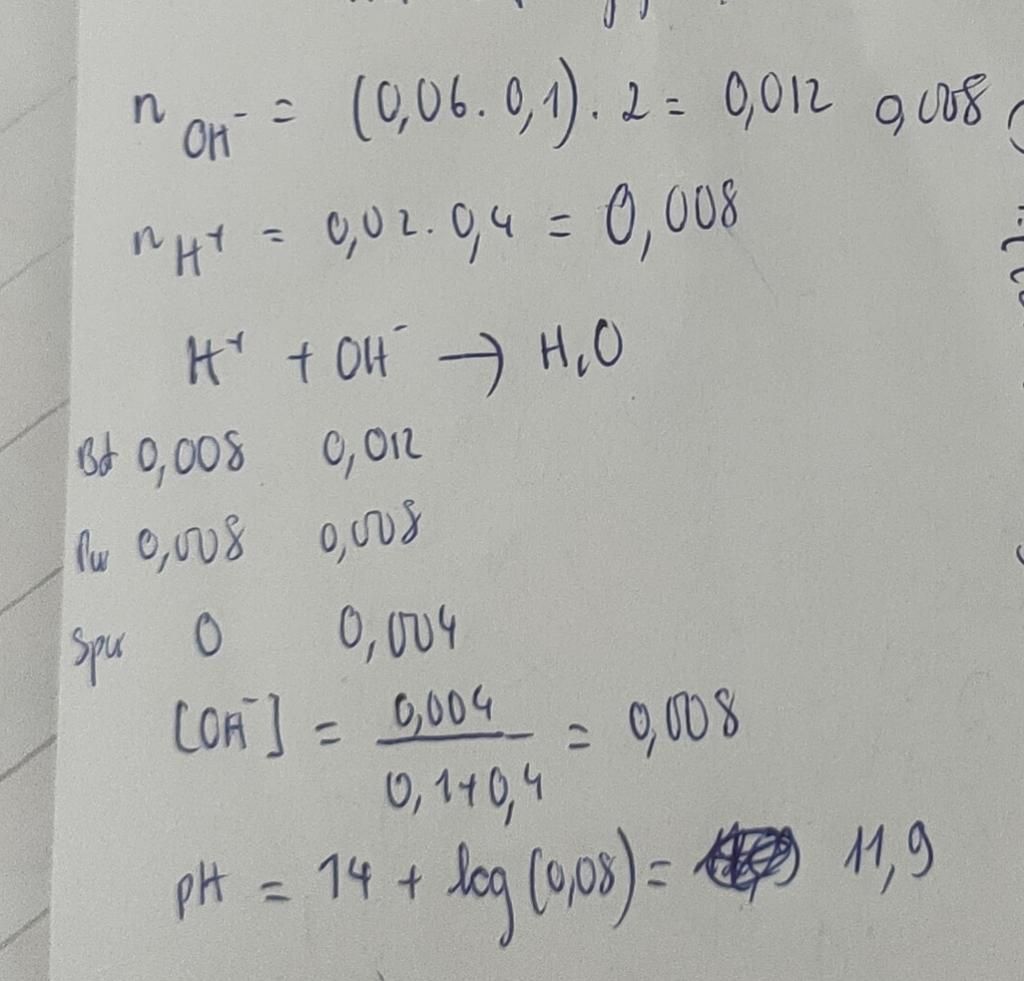 n OH⁻ = (0,06 . 0,1) . 2 = 0,012 0,008
n H⁺ = 0,02 . 0,4 = 0,008
H⁺ + OH⁻ → H₂O
Bđ 0,008 0,012
Pư 0,008 0,008
Spư 0 0,004
[OH⁻] = 0,004 / 0,1+0,4 = 0,008
pH = 14 + log (0,08) = 11,9